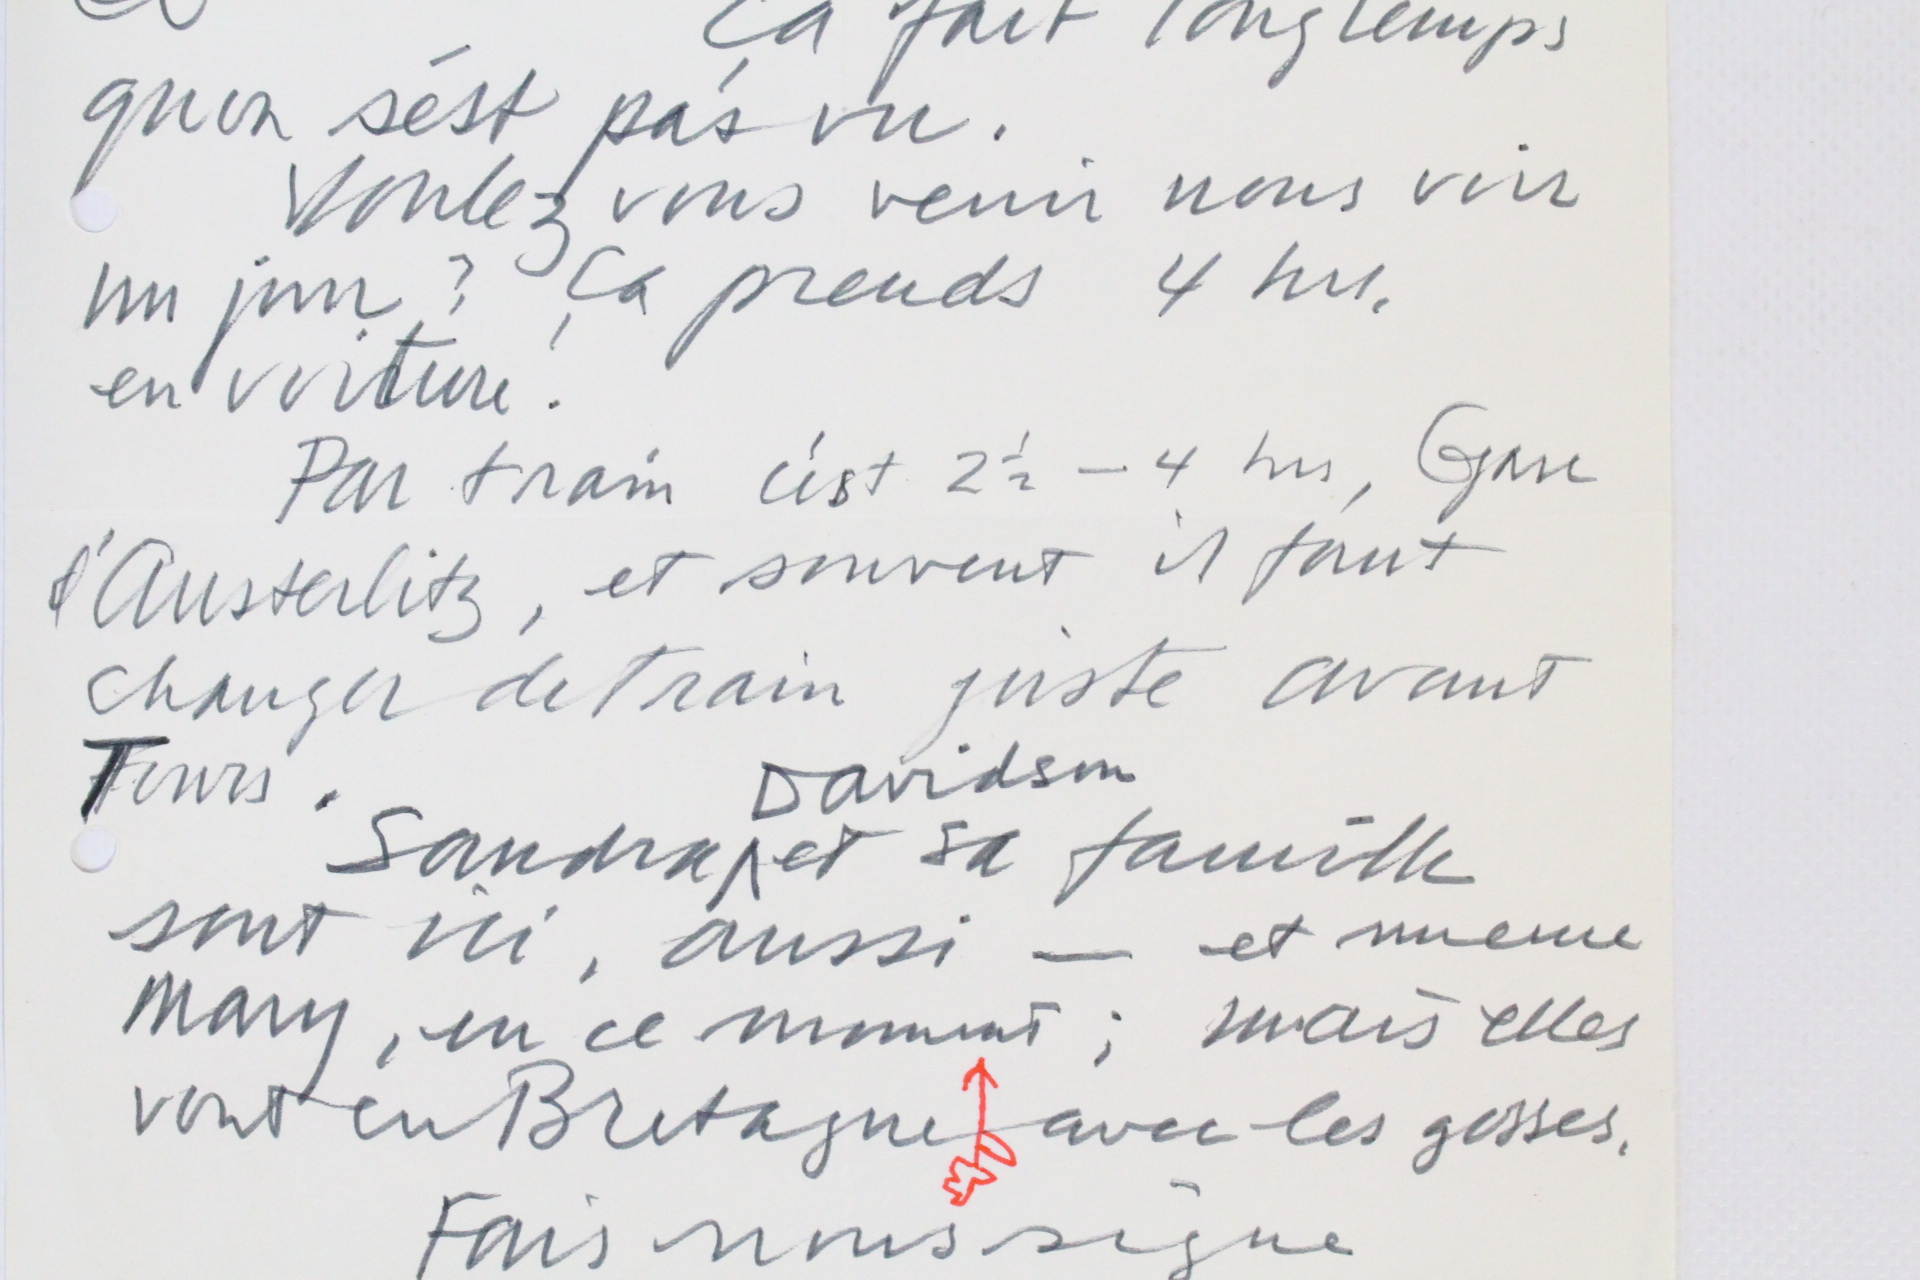 Ça fait longtemps
qu'on s'est pas vu.
Voulez vous venir nous voir
un jour ? Ça prends 4 hrs.
en voiture.
Par train c'est 2½ – 4 hrs, Gare
d'Austerlitz, et souvent il faut
changer de train juste avant
Tours.
Davidson
Sandra et sa famille
sont ici, aussi — et meme
Mary, en ce moment ; mais elles
vont en Bretagne avec les gosses.
Fais nous signe